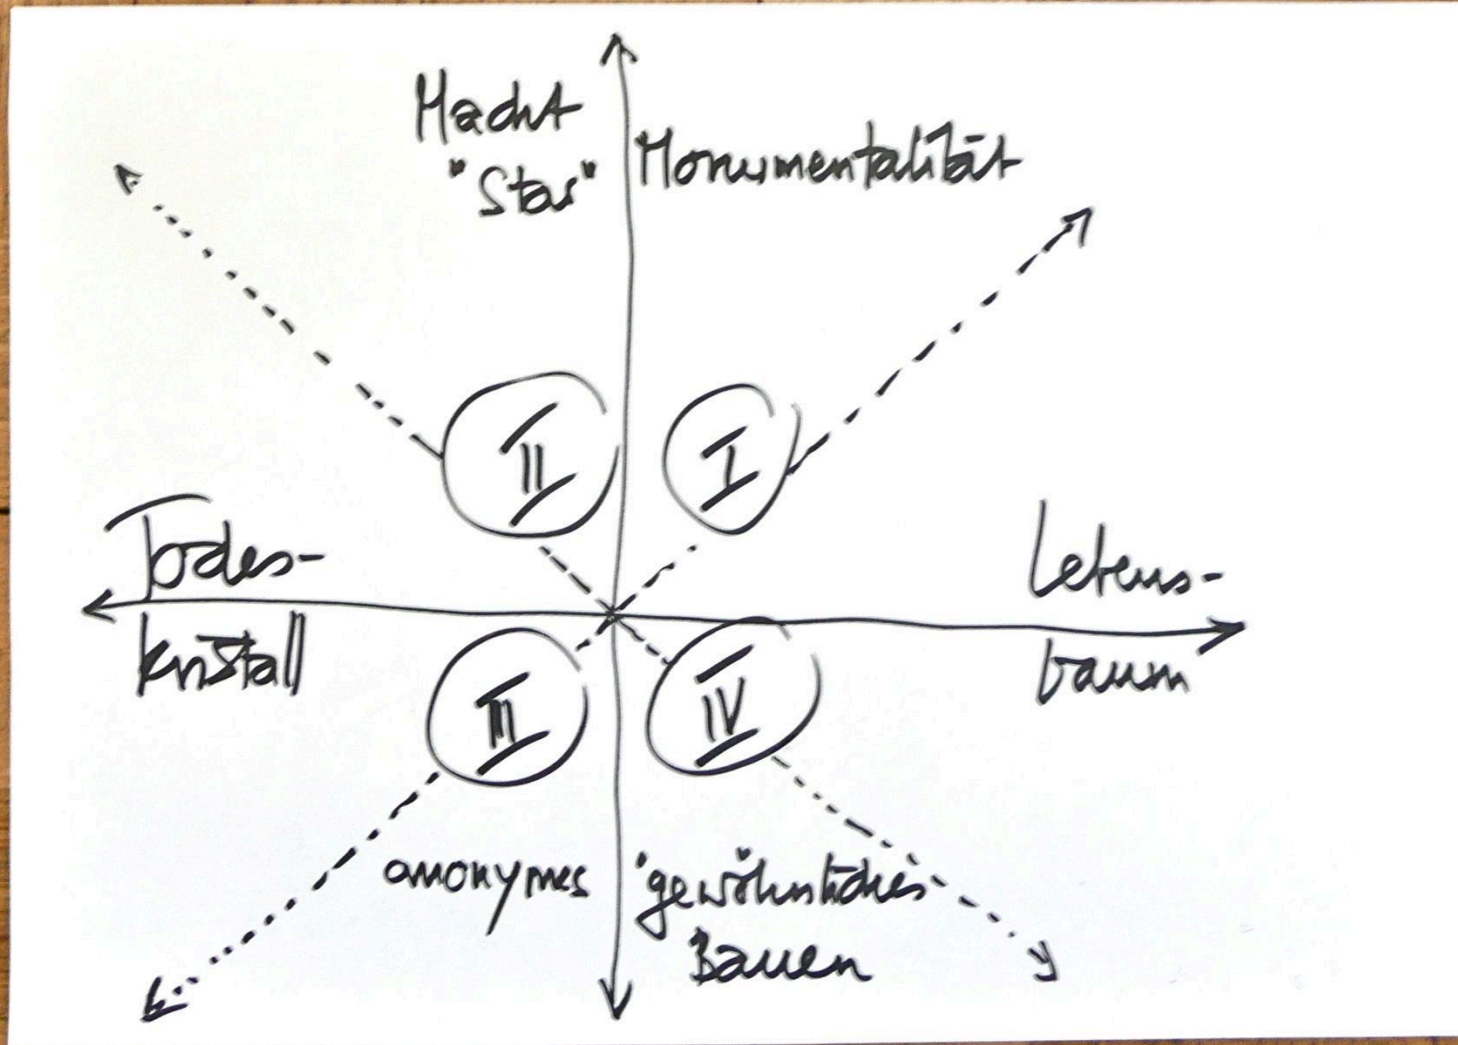 Macht
"Star"
Monumentalität
II
I
Todes-
kristall
Lebens-
baum
III
IV
anonymes
"gewöhnliches"
Bauen